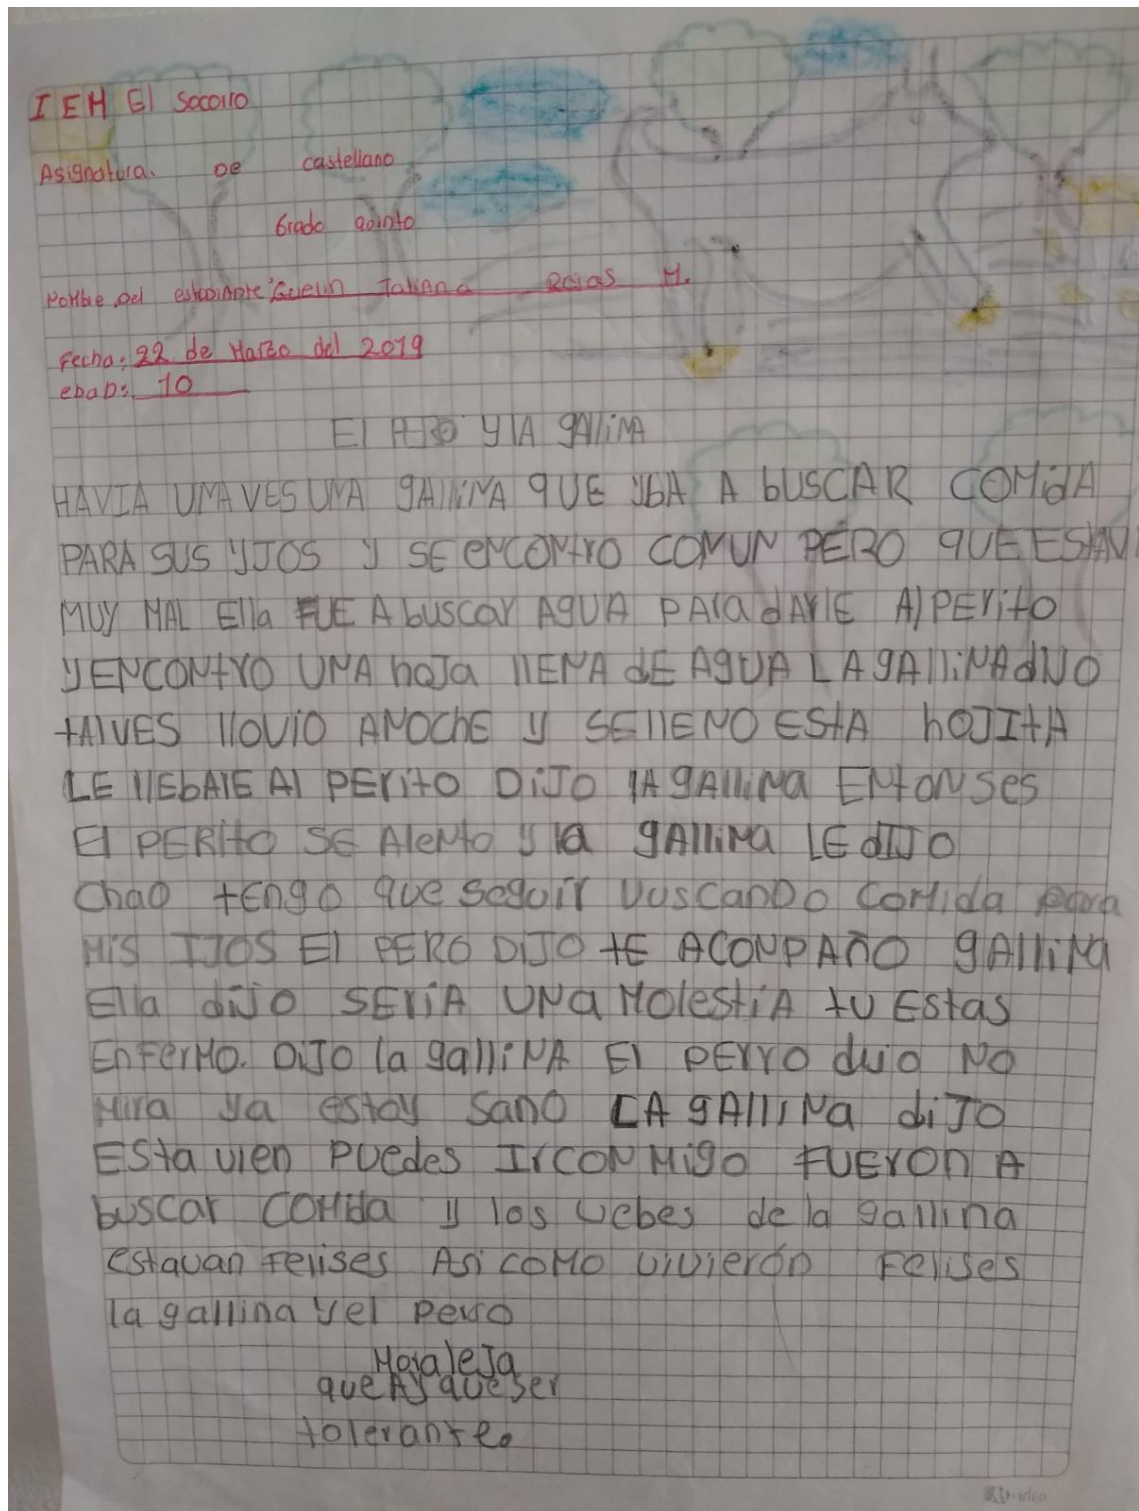 IEH El Socorro
Asignatura. De castellano
Grado quinto
Nombre del estudiante Tatiana Rojas M.
Fecha: 22 de Marzo del 2019
ebaD: 10
El PERO Y lA gAlliNA
HAVIA UNA VES UNA gAlliNA QUE YBA A bUSCAR COMidA
PARA SUS YJOS Y SE eNCONtro CONUN PERO QUE EStAV
MUY MAL Ella FUE A buscar AgUA PAra dArlE Al PErito
Y ENCONtrO UNA hoJa llENA dE AgUA LA gAlliNA diJO
tAlVES llOViO ANOChE Y SE llENO EStA hOJItA
LE llEbArE Al PErito DiJO lA gAlliNa ENtonses
El PERito SE AleNto y la gAlliNa LE dIJO
Chao tengo que seguir vuscanDo coMida para
MiS IJOS El PERO DIJO tE ACONPAÑO gAlliNA
Ella diJO SEriA UNa MolestiA tu Estas
ENFerMo. DiJO la gallinA El PErro dijo NO
Mira ya estoy sano LA gAlliNa diJO
ESta vien PUedes Ir CON Migo FUEron A
buscar COMida y los uebes de la gallina
estavan Felises Asi coMo vivierón Felises
la gallina y el perro
MoraleJa
que Ay que ser
tolerante.